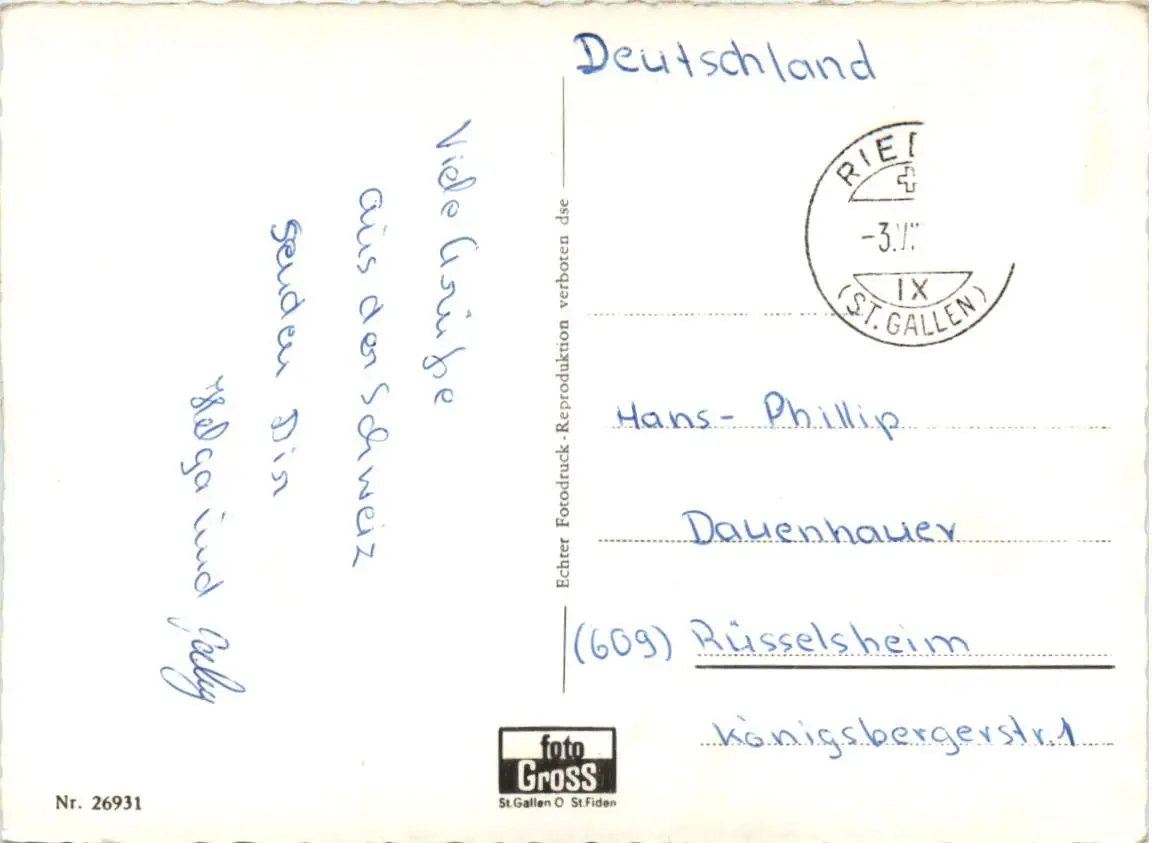 Deutschland
Viele Grüße
aus der Schweiz
senden Dir
Helga und
RIED
-3.
IX
(ST. GALLEN)
Hans-Phillip
Dauenhauer
(609) Rüsselsheim
Königsbergerstr. 1
Echter Fotodruck-Reproduktion verboten dse
foto
GROSS
St.Gallen O St.Fiden
Nr. 26931